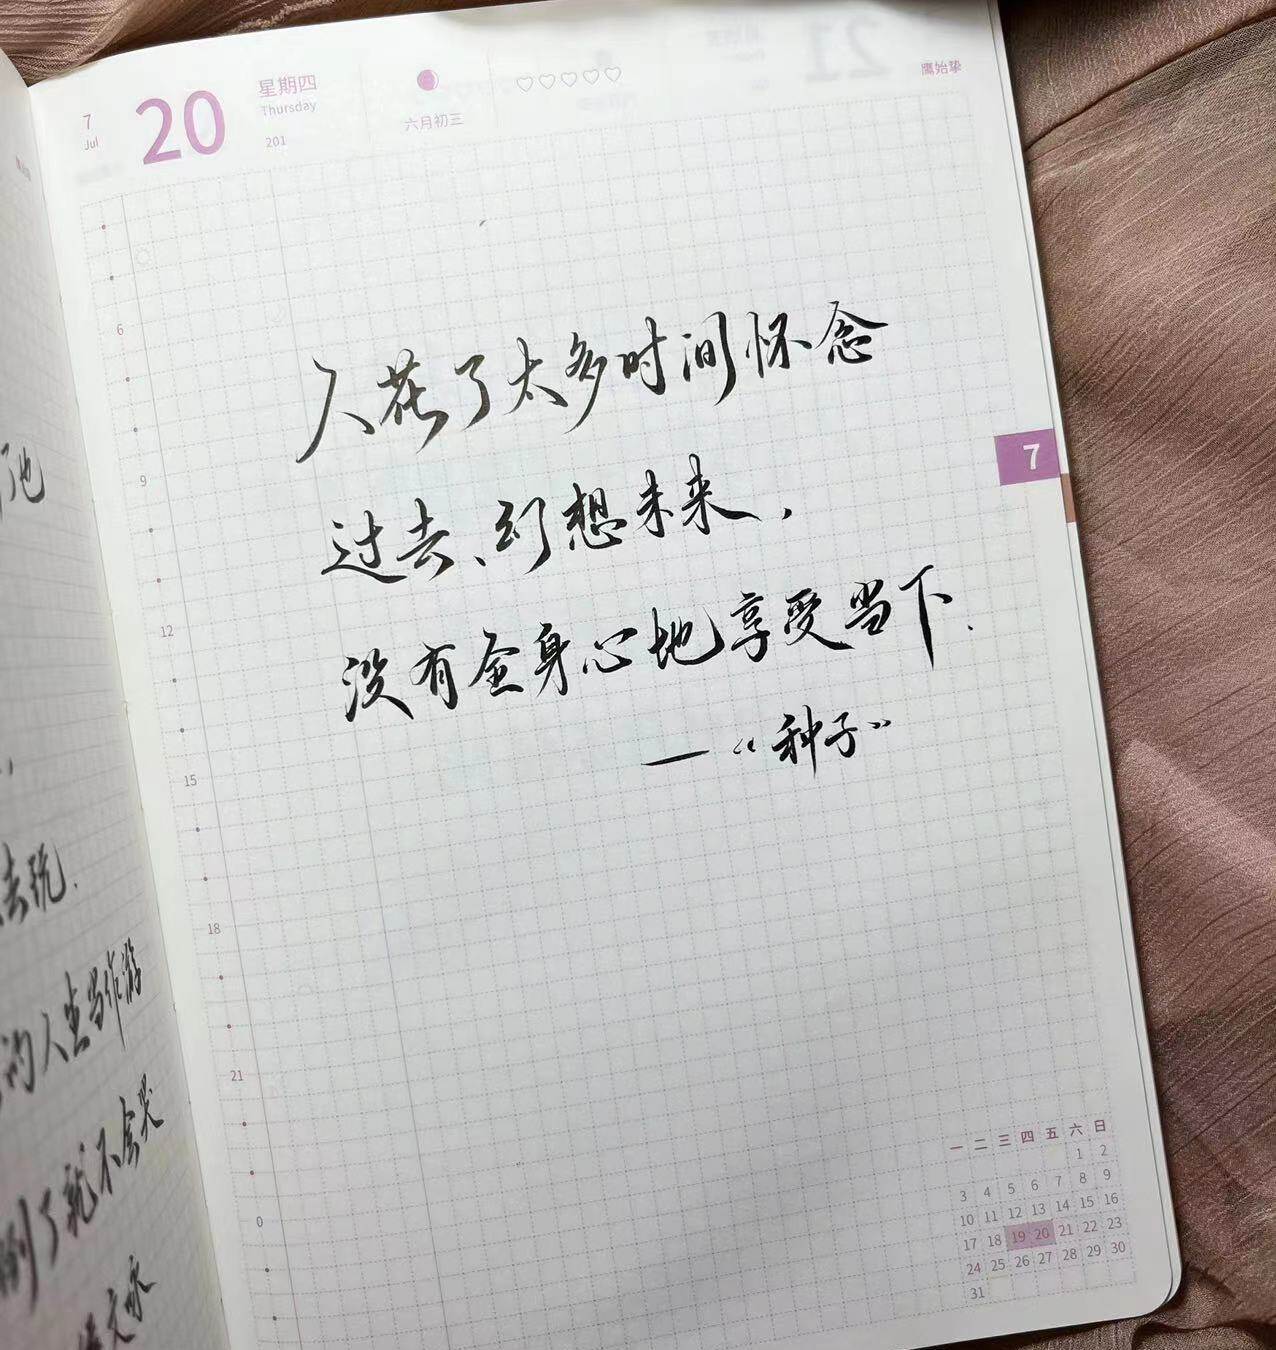 7
Jul
20
星期四
Thursday
201
六月初三
♡♡♡♡♡
鷹始挚
21
6
9
12
15
18
21
0
人花了太多时间怀念
过去、幻想未来，
没有全身心地享受当下.
—“种子”
7
了他
去玩.
的人生当作游
倒了就不会哭
一 二 三 四 五 六 日
1 2
3 4 5 6 7 8 9
10 11 12 13 14 15 16
17 18 19 20 21 22 23
24 25 26 27 28 29 30
31